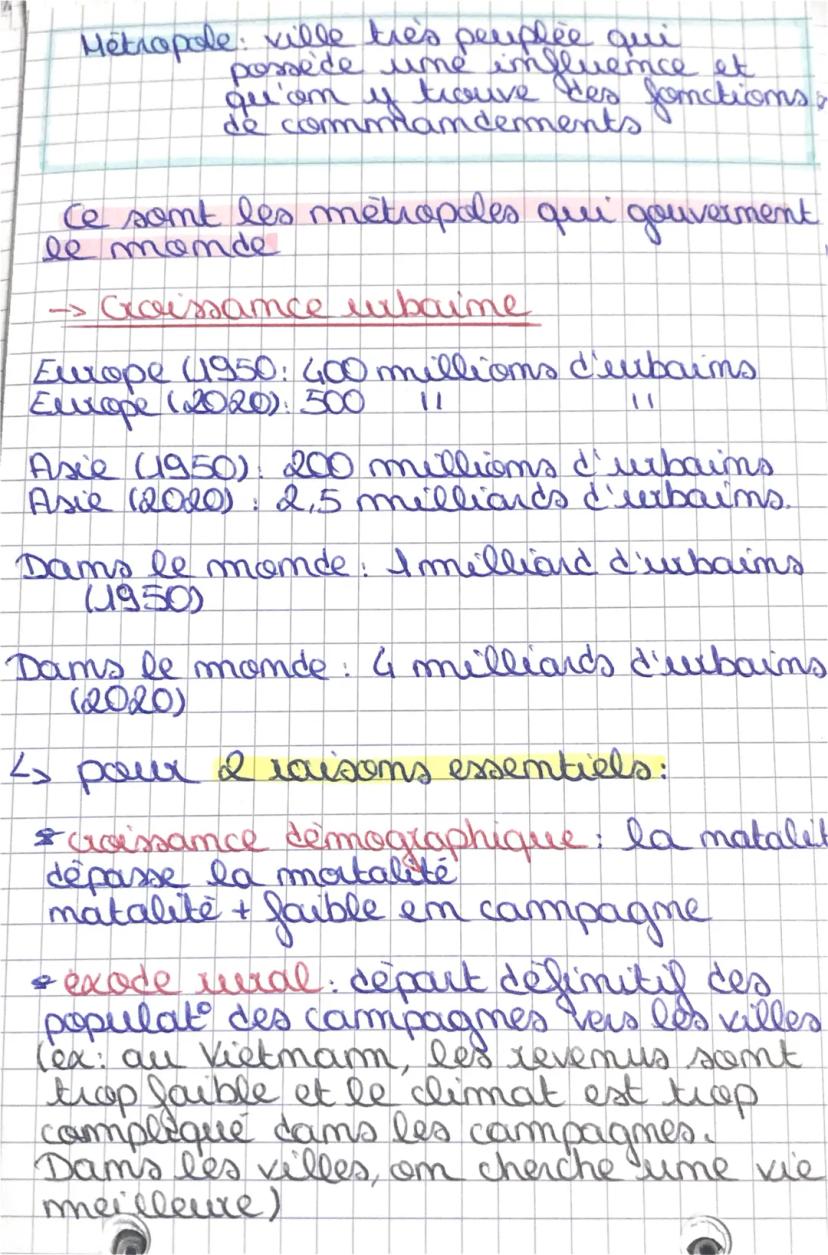 Métropole : ville très peuplée qui
possède une influence et
qu'on y trouve des fonctions
de commandements
Ce sont les métropoles qui gouvernent
le monde
→ Croissance urbaine
Europe (1950 : 400 millions d'urbains
Europe (2020) : 500 " "
Asie (1950) : 200 millions d'urbains
Asie (2020) : 2,5 milliards d'urbains.
Dans le monde : 1 milliard d'urbains
(1950)
Dans le monde : 4 milliards d'urbains
(2020)
↳ pour 2 raisons essentiels :
* croissance démographique : la natalit
dépasse la mortalité
natalité + faible en campagne
* exode rural : départ définitif des
populat° des campagnes vers les villes
(ex : au Vietnann, les revenus sont
trop faible et le climat est trop
compliqué dans les campagnes.
Dans les villes, on cherche une vie
meilleure)